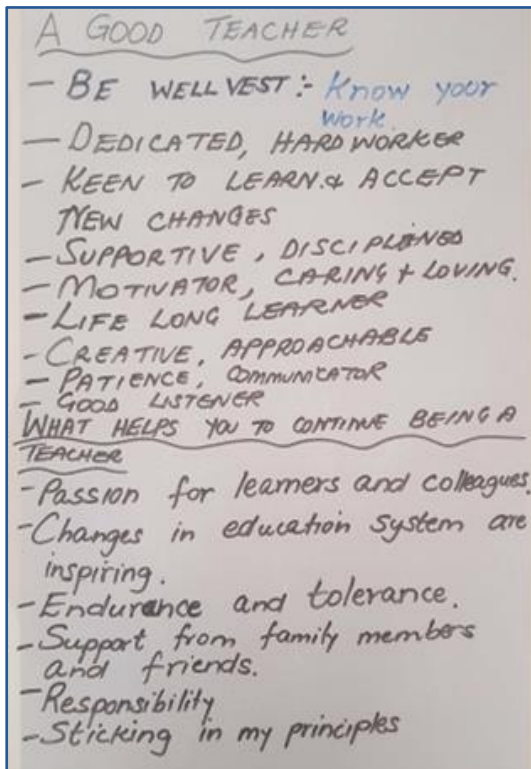 A GOOD TEACHER
- BE WELL VEST:- Know your
work
- DEDICATED, HARD WORKER
- KEEN TO LEARN & ACCEPT
NEW CHANGES
- SUPPORTIVE, DISCIPLINED
- MOTIVATOR, CARING + LOVING.
- LIFE LONG LEARNER
- CREATIVE, APPROACHABLE
- PATIENCE, COMMUNICATOR
- GOOD LISTENER
WHAT HELPS YOU TO CONTINUE BEING A
TEACHER
- Passion for learners and colleagues
- Changes in education system are
inspiring.
- Endurance and tolerance.
- Support from family members
and friends.
- Responsibility
- Sticking in my principles